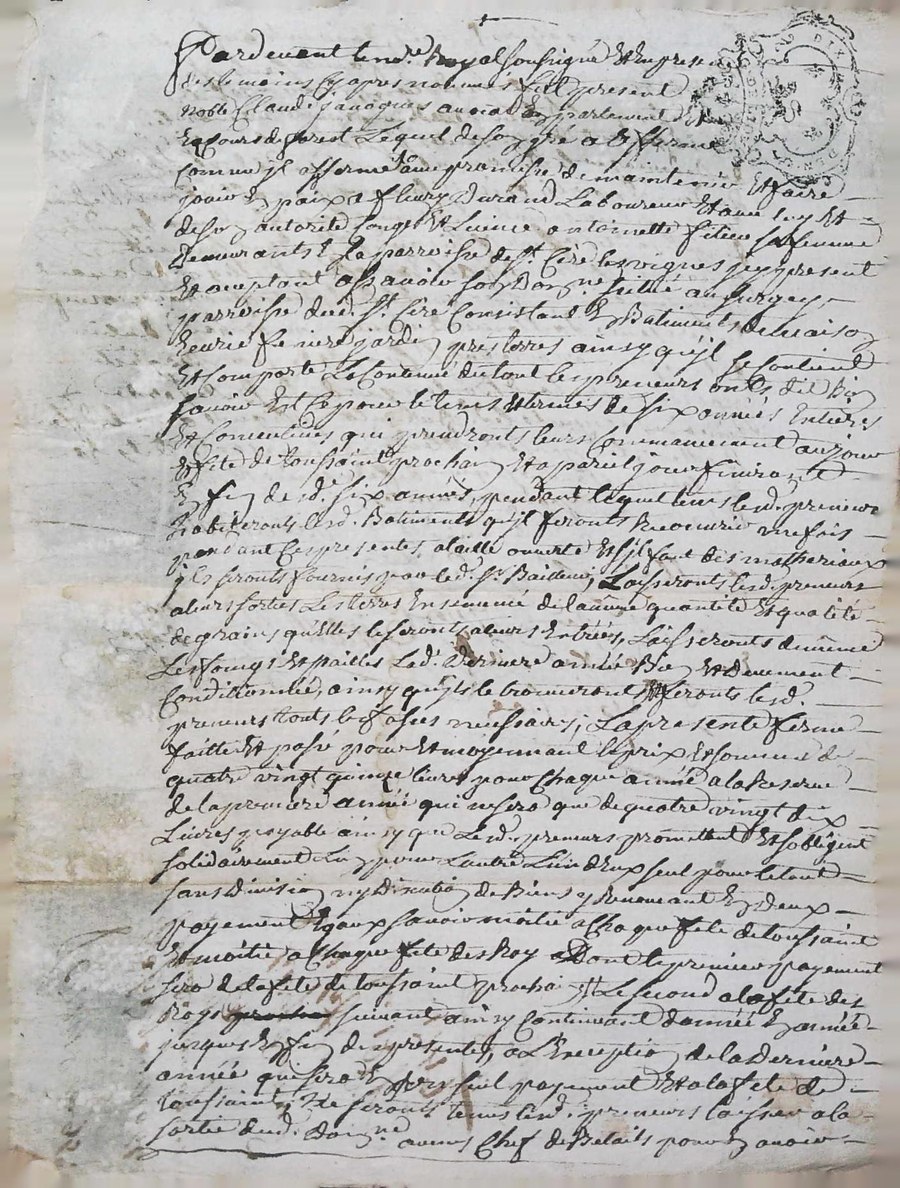 Pardevant le no.re Royal soussigné Et En presence
des temoins cy apres nommés fut present
noble Claude Janoques avocat En parlement
Ez Cours de forest Lequel de son gré a afferme
comme jl afferme avec promesse de maintenir Et faire
jouir En paix a fleury Durand Laboureur Et avec luy Et
de son autorité Congé Et Licence antoinette filieu sa femme
Demeurants En la parroisse de St. Cire les vignes jcy present
Et aceptant assavoir son Domaine situé au
parroisse dud. St. Cire Consistant En Batiments de maison
Ecurie feniere jardin pres terres ainsy qu'jl se Contient
Et Comporte Le Contenu du tout les preneurs onts dit Bien
savoir Et Ce pour le tems Et termes de six années Entieres
Et Consecutives qui prendronts leurs Commancement au jour
Et fete de toussaint prochain Et a pareil jour finiront
En fin de sd. six années, pendant lequel tems lesd. preneurs
habiteronts lesd. Batiments qu'jl feronts Recouvrir une fois
pendant Ces presentes, a taille ouverte Et s'jl faut des matheriaux
jls seronts fournis par led. Sr. Bailleur, Laisseronts lesd. preneurs
a leurs sorties Les terres Ensemencé de la même quantité Et qualité
de grains qu'Elles le seronts a leurs Entrées, Laisseronts de même
Les foings Et pailles Lad. Derniere année Bien Et Deuement
Conditionnées, ainsy qu'jls le trouveront Et feronts lesd.
preneurs touts les fossés necessaires, La presente ferme
faitte Et passé pour Et moyennant le prix Et somme de
quatre vingt quinze livres pour Chaque année a la Reserve
de la premiere année qui ne sera que de quatre vingt dix
Livres payable ainsy que Lesd. preneurs promettent Et s'obligent
solidairement L'un pour L'autre L'un d'Eux seul pour le tout
sans Division ny Discution de Biens y Renonceant En deux
payement Egaux savoir moitié a Chaque fete de toussaint
Et moitié a Chaque fete des Roy Dont le premier payement
sera de la fete de toussaint prochain Et Le second a la fete des
Roys suivant ainsy Continuant d'année En année
jusques En fin des presentes, a L'Exception de la Derniere
année qui sera En un seul payement Et a la fete de
toussaint, Et seronts tenus lesd. preneurs laisser a la
sortie dud. Domaine Chef de Betails pour En avoir